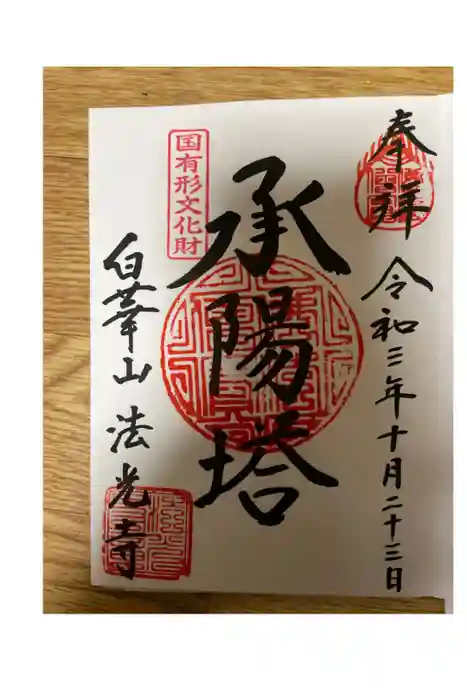 奉拝
令和三年十月二十三日
承陽塔
国有形文化財
白華山法光寺